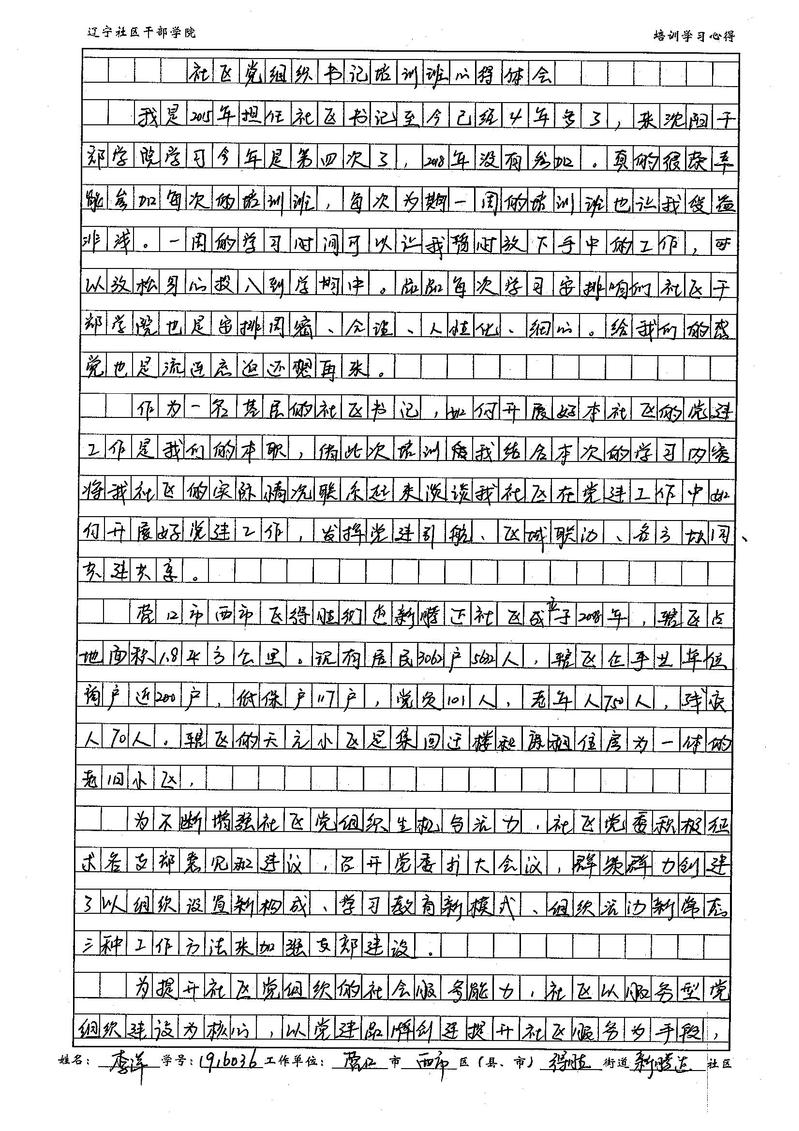 辽宁社区干部学院 培训学习心得
社区党组织书记培训班心得体会
我是2015年担任社区书记至今已经4年多了，来沈阳干
部学院学习今年是第四次了，2018年没有参加。真的很荣幸
能参加每次的培训班，每次为期一周的培训班也让我受益
非浅。一周的学习时间可以让我暂时放下手中的工作，可
以放松身心投入到学习中。品品每次学习安排咱们社区干
部学院也是安排周密、合谐、人性化、细心。给我们的感
觉也是流连忘返还想再来。
作为一名基层的社区书记，如何开展好本社区的党建
工作是我们的本职，借此次培训使我结合本次的学习内容
将我社区的实际情况联系起来谈谈我社区在党建工作中如
何开展好党建工作，发挥党建引航、区域联动、各方协同、
共建共享。
营口市西市区得胜街道新腾达社区成立于2008年，辖区占
地面积1.8平方公里。现有居民3062户5632人，辖区企事业单位
商户近200户，低保户117户，党员101人，老年人750人，残疾
人70人。辖区的天元小区是集回迁楼和廉租住房为一体的
老旧小区，
为不断增强社区党组织生机与活力，社区党委积极征
求各支部意见和建议，召开党委扩大会议，群策群力创建
了以组织设置新构成、学习教育新模式、组织活动新常态
三种工作方法来加强支部建设。
为提升社区党组织的社会服务能力，社区以服务型党
组织建设为核心，以党建品牌创建提升社区服务为手段，
姓名：李洋 学号：1916036 工作单位：营口 市 西市 区（县、市） 得胜 街道 新腾达 社区